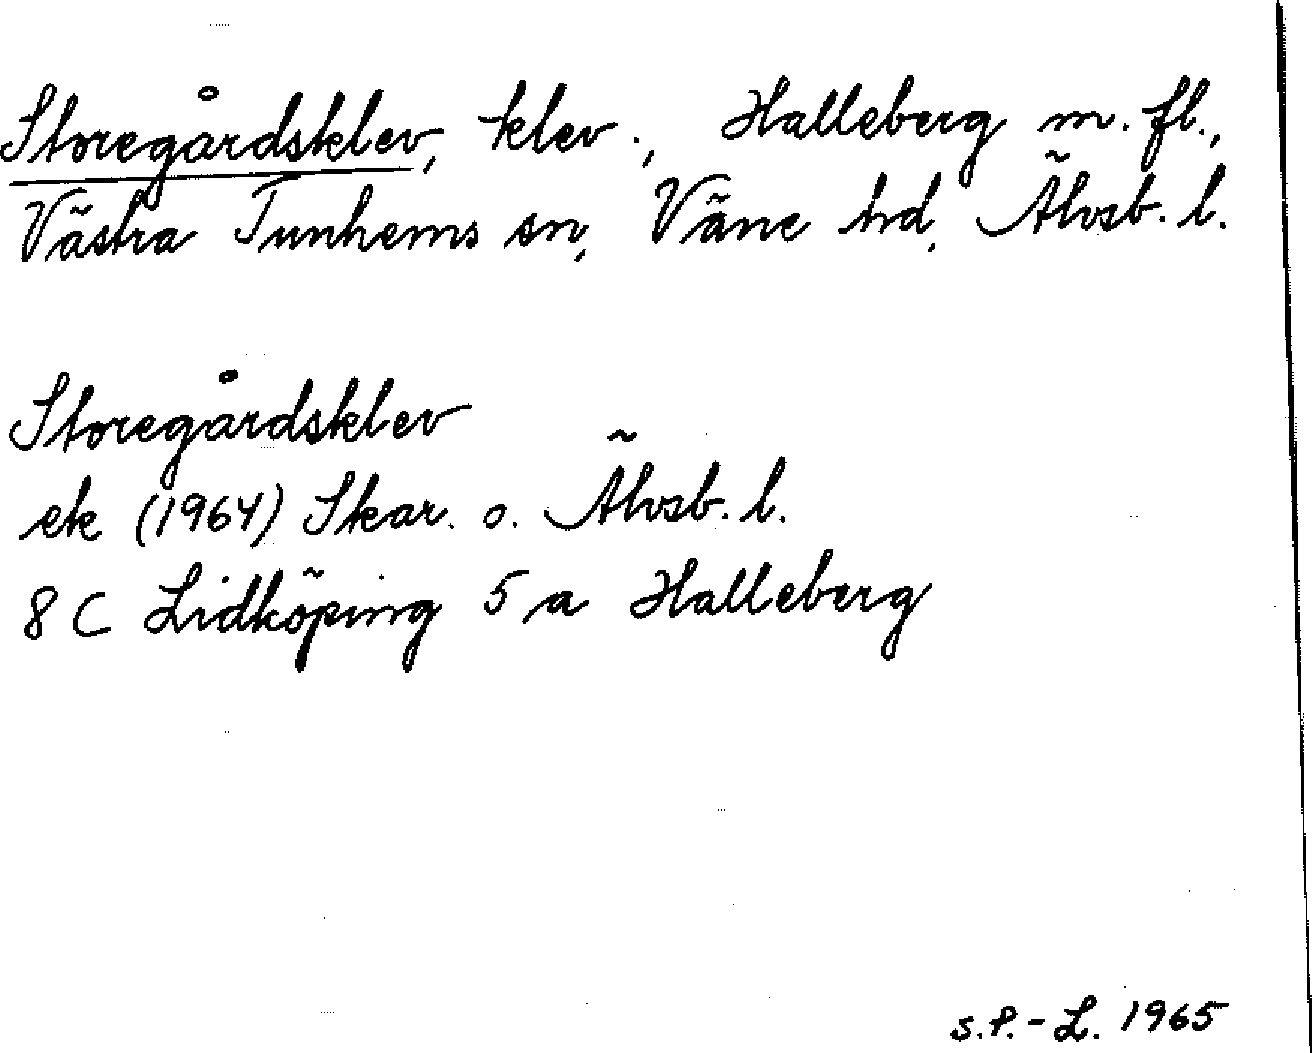 Storegårdsklev, klev., Halleberg m. fl.,
Västra Tunhems sn, Väne hd, Älvsb. l.
Storegårdsklev
ek (1964) Skar. o. Älvsb. l.
8 C Lidköping 5 a Halleberg
S.P.-L. 1965